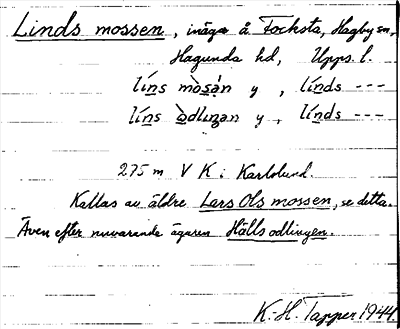 Linds mossen, inäga å Focksta, Hagby sn,
Hagunda hd, Upps. l.
líns mòsàn y, línds ---
líns òdliŋan y, línds ---
275 m V K i Karlslund.
Kallas av äldre Lars Ols mossen, se detta.
Även efter nuvarande ägaren Hälls odlingen.
K.-H. Tapper 1944.